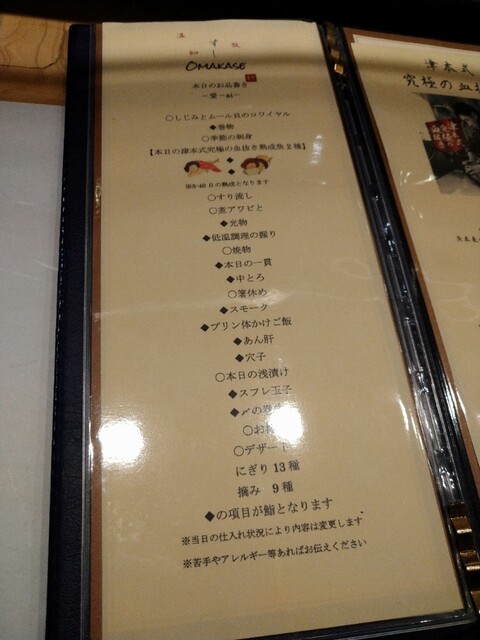 すし
OMAKASE
本日のお品書き
○しじみとムール貝のロワイヤル
◆巻物
○季節の刺身
【本日の津本式究極の血抜き熟成魚2種】
◆
◆
日の熟成となります
○すり流し
○煮アワビと
◆光物
◆低温調理の握り
○焼物
◆本日の一貫
◆中とろ
○箸休め
◆スモーク
◆プリン体かけご飯
◆あん肝
◆穴子
○本日の浅漬け
◆スフレ玉子
◆〆の巻
○お
○デザート
にぎり 13 種
摘み 9 種
◆の項目が鮨となります
※当日の仕入れ状況により内容は変更します
※苦手やアレルギー等あればお伝えください
津本式
究極の血